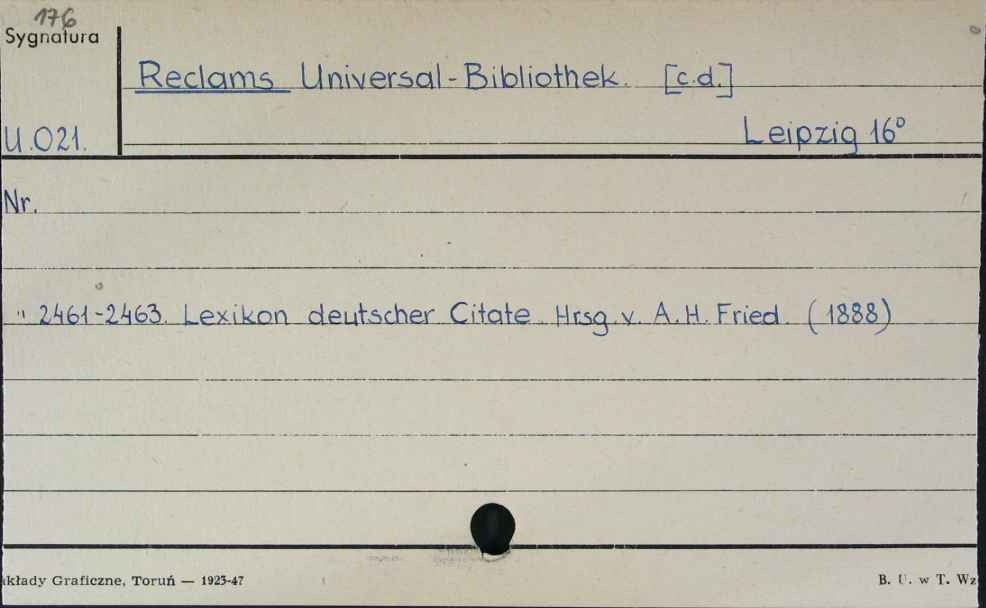 176
Sygnatura
Reclams Universal-Bibliothek. [c.d.]
U.021.
Leipzig 16°
Nr.
" 2461-2463. Lexikon deutscher Citate. Hrsg. v. A.H. Fried. (1888)
kłady Graficzne, Toruń — 1925-47
B. U. w T. Wz